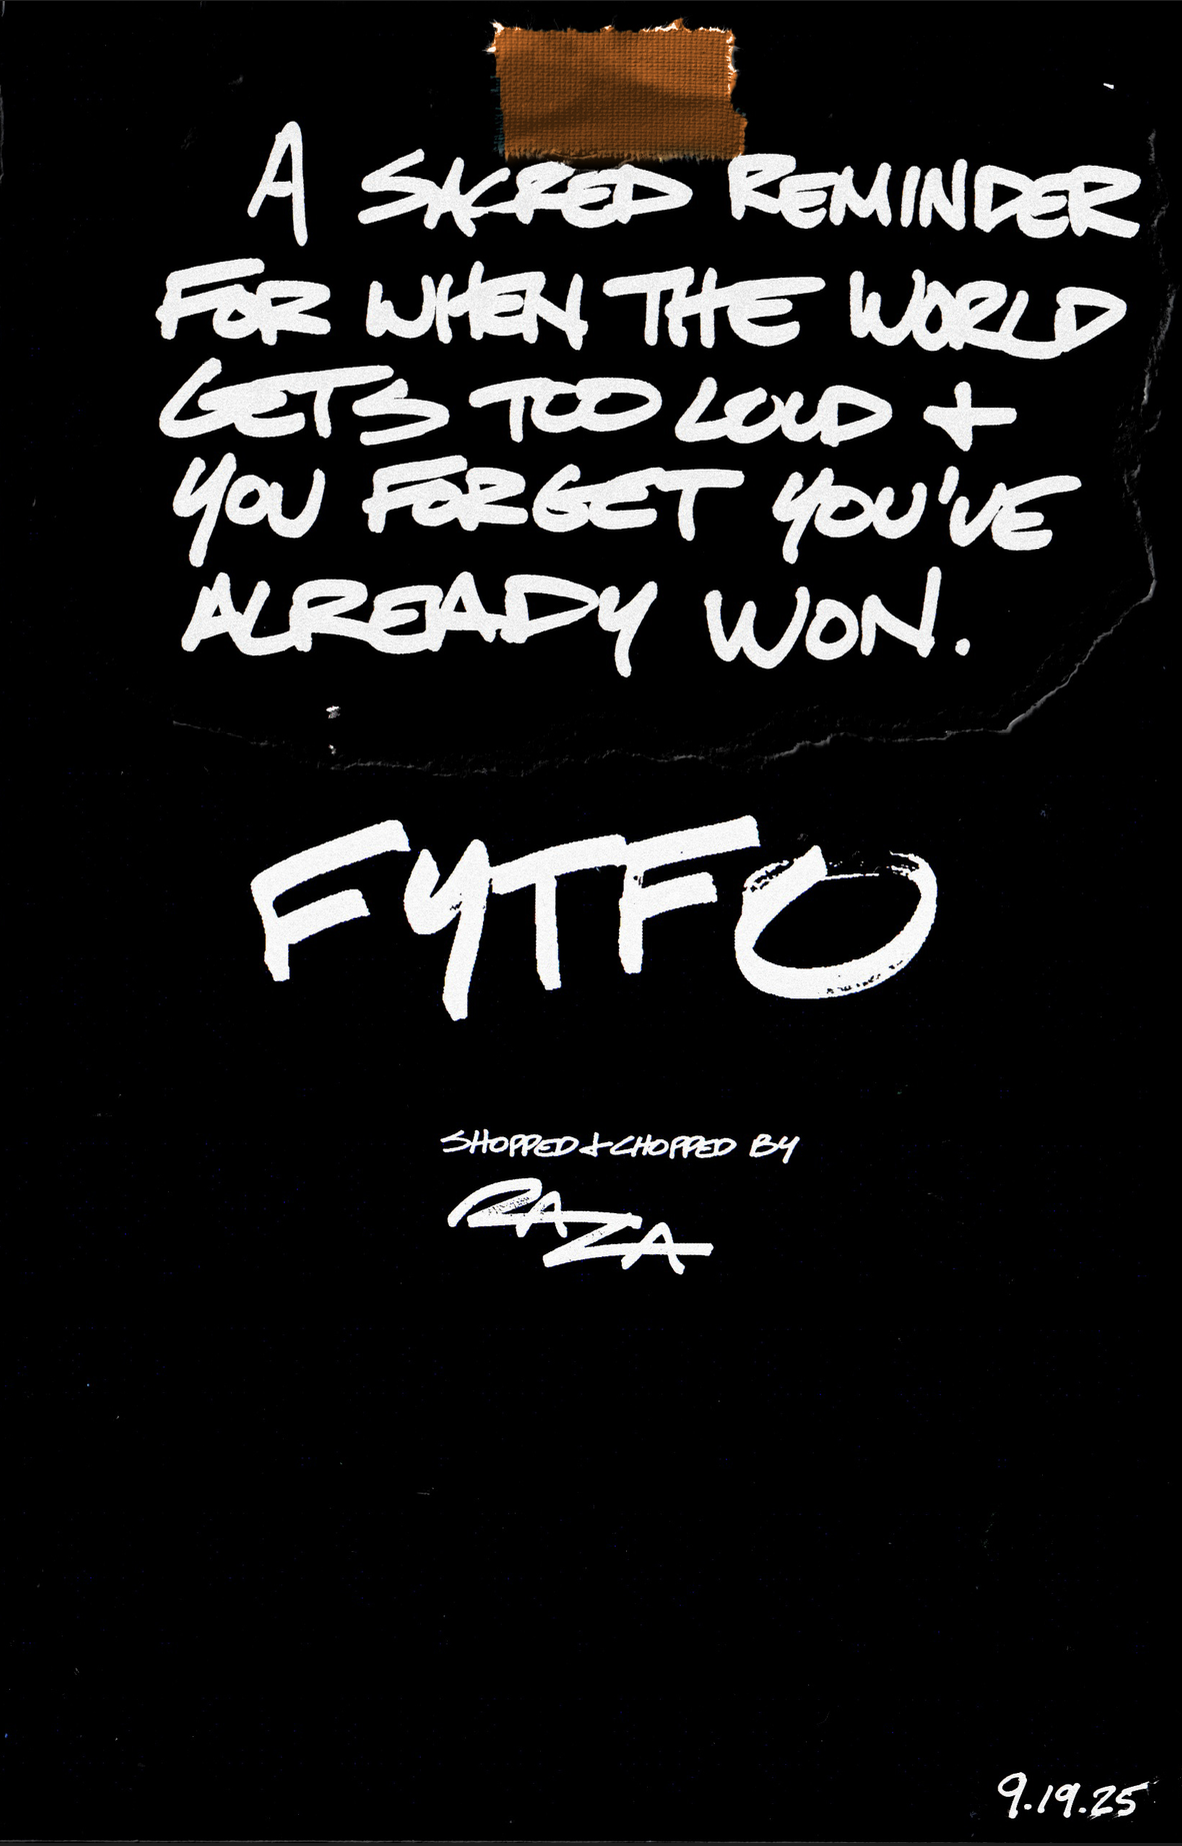 A SACRED REMINDER
FOR WHEN THE WORLD
GETS TOO LOUD +
YOU FORGET YOU'VE
ALREADY WON.
FYTFO
SHOPPED + CHOPPED BY
RAZA
9.19.25